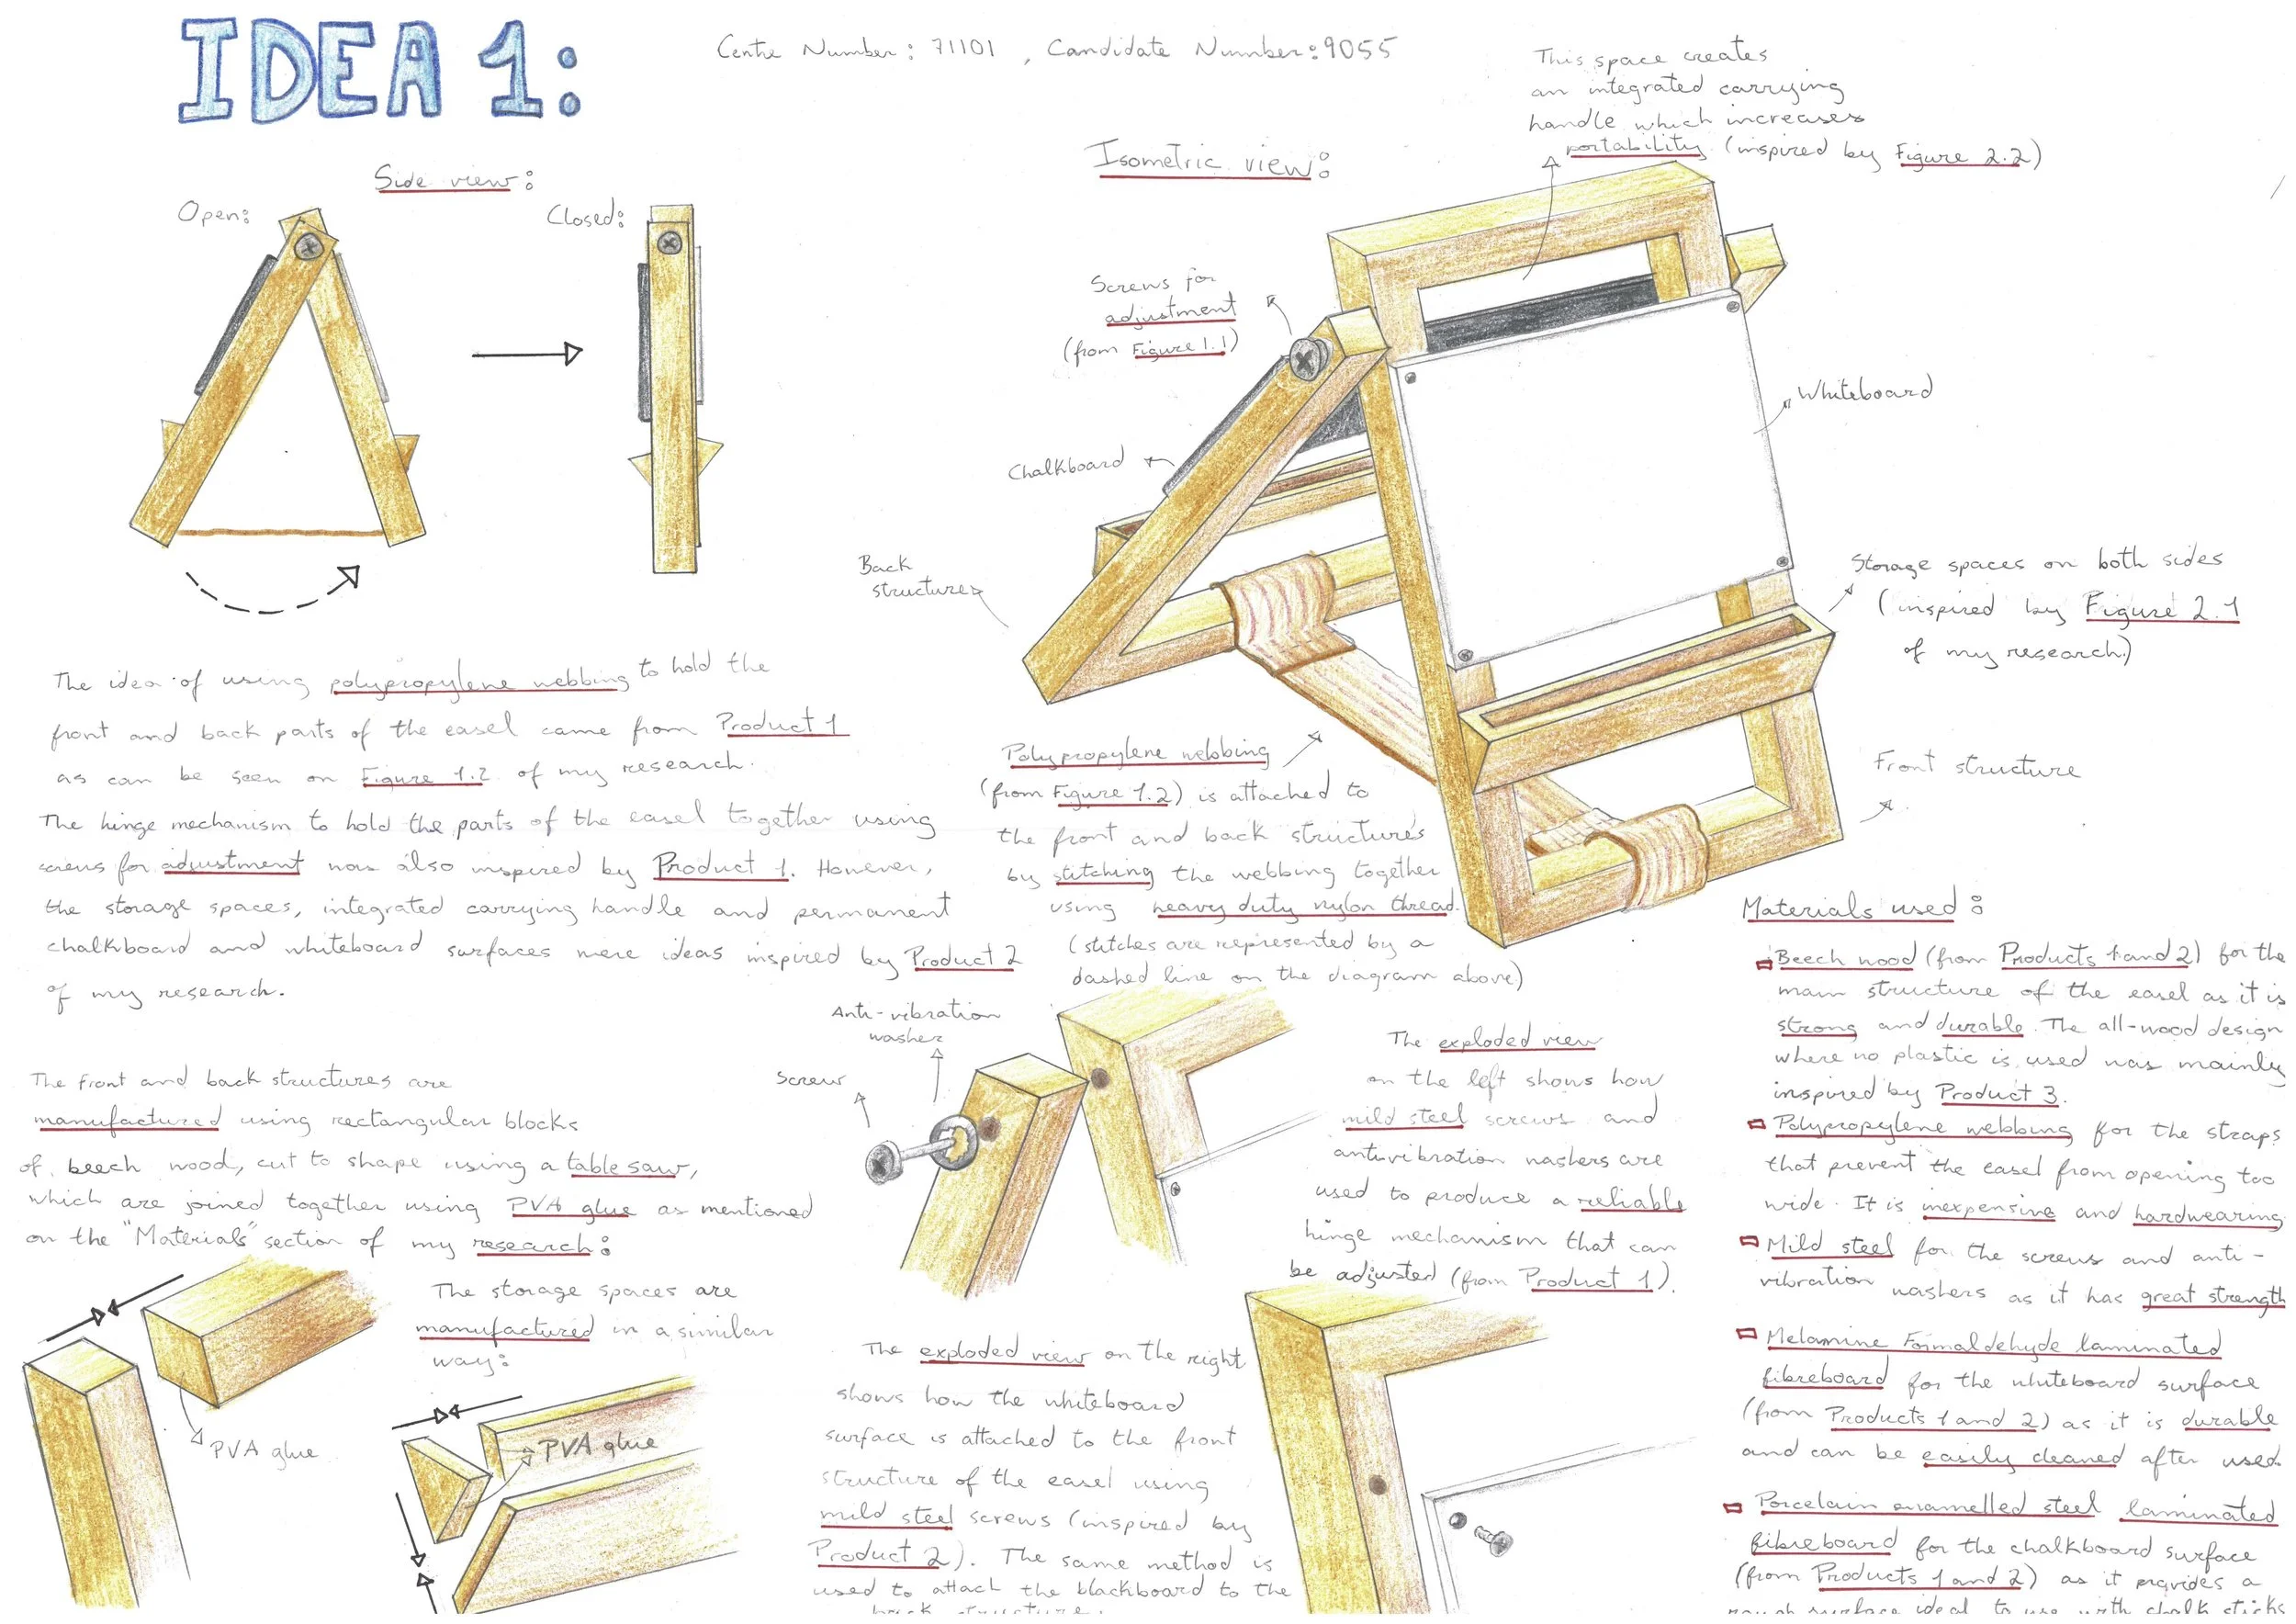 IDEA 1:
Centre Number: 71101, Candidate Number: 9055
This space creates
an integrated carrying
handle which increases
portability (inspired by Figure 2.2)
Side view:
Open:
Closed:
Isometric view:
Screws for
adjustment
(from Figure 1.1)
Whiteboard
Chalkboard
Back
structure
Storage spaces on both sides
(inspired by Figure 2.1
of my research.)
The idea of using polypropylene webbing to hold the
front and back parts of the easel came from Product 1
as can be seen on Figure 1.2 of my research.
The hinge mechanism to hold the parts of the easel together using
screws for adjustment was also inspired by Product 1. However,
the storage spaces, integrated carrying handle and permanent
chalkboard and whiteboard surfaces were ideas inspired by Product 2
of my research.
Polypropylene webbing
(from Figure 1.2) is attached to
the front and back structures
by stitching the webbing together
using heavy duty nylon thread.
(stitches are represented by a
dashed line on the diagram above)
Front structure
Materials used:
Beech wood (from Products 1 and 2) for the
main structure of the easel as it is
strong and durable. The all-wood design
where no plastic is used was mainly
inspired by Product 3.
Polypropylene webbing for the straps
that prevent the easel from opening too
wide. It is inexpensive and hardwearing
Mild steel for the screws and anti-
vibration washers as it has great strength
Melamine Formaldehyde laminated
fibreboard for the whiteboard surface
(from Products 1 and 2) as it is durable
and can be easily cleaned after used.
Porcelain enamelled steel laminated
fibreboard for the chalkboard surface
(from Products 1 and 2) as it provides a
rough surface ideal to use with chalk sticks
Anti-vibration
washer
Screw
The exploded view
on the left shows how
mild steel screws and
antivibration washers are
used to produce a reliable
hinge mechanism that can
be adjusted (from Product 1).
The front and back structures are
manufactured using rectangular blocks
of beech wood, cut to shape using a table saw,
which are joined together using PVA glue as mentioned
on the "Materials" section of my research:
PVA glue
The storage spaces are
manufactured in a similar
way:
PVA glue
The exploded view on the right
shows how the whiteboard
surface is attached to the front
structure of the easel using
mild steel screws (inspired by
Product 2). The same method is
used to attach the blackboard to the
back structure.